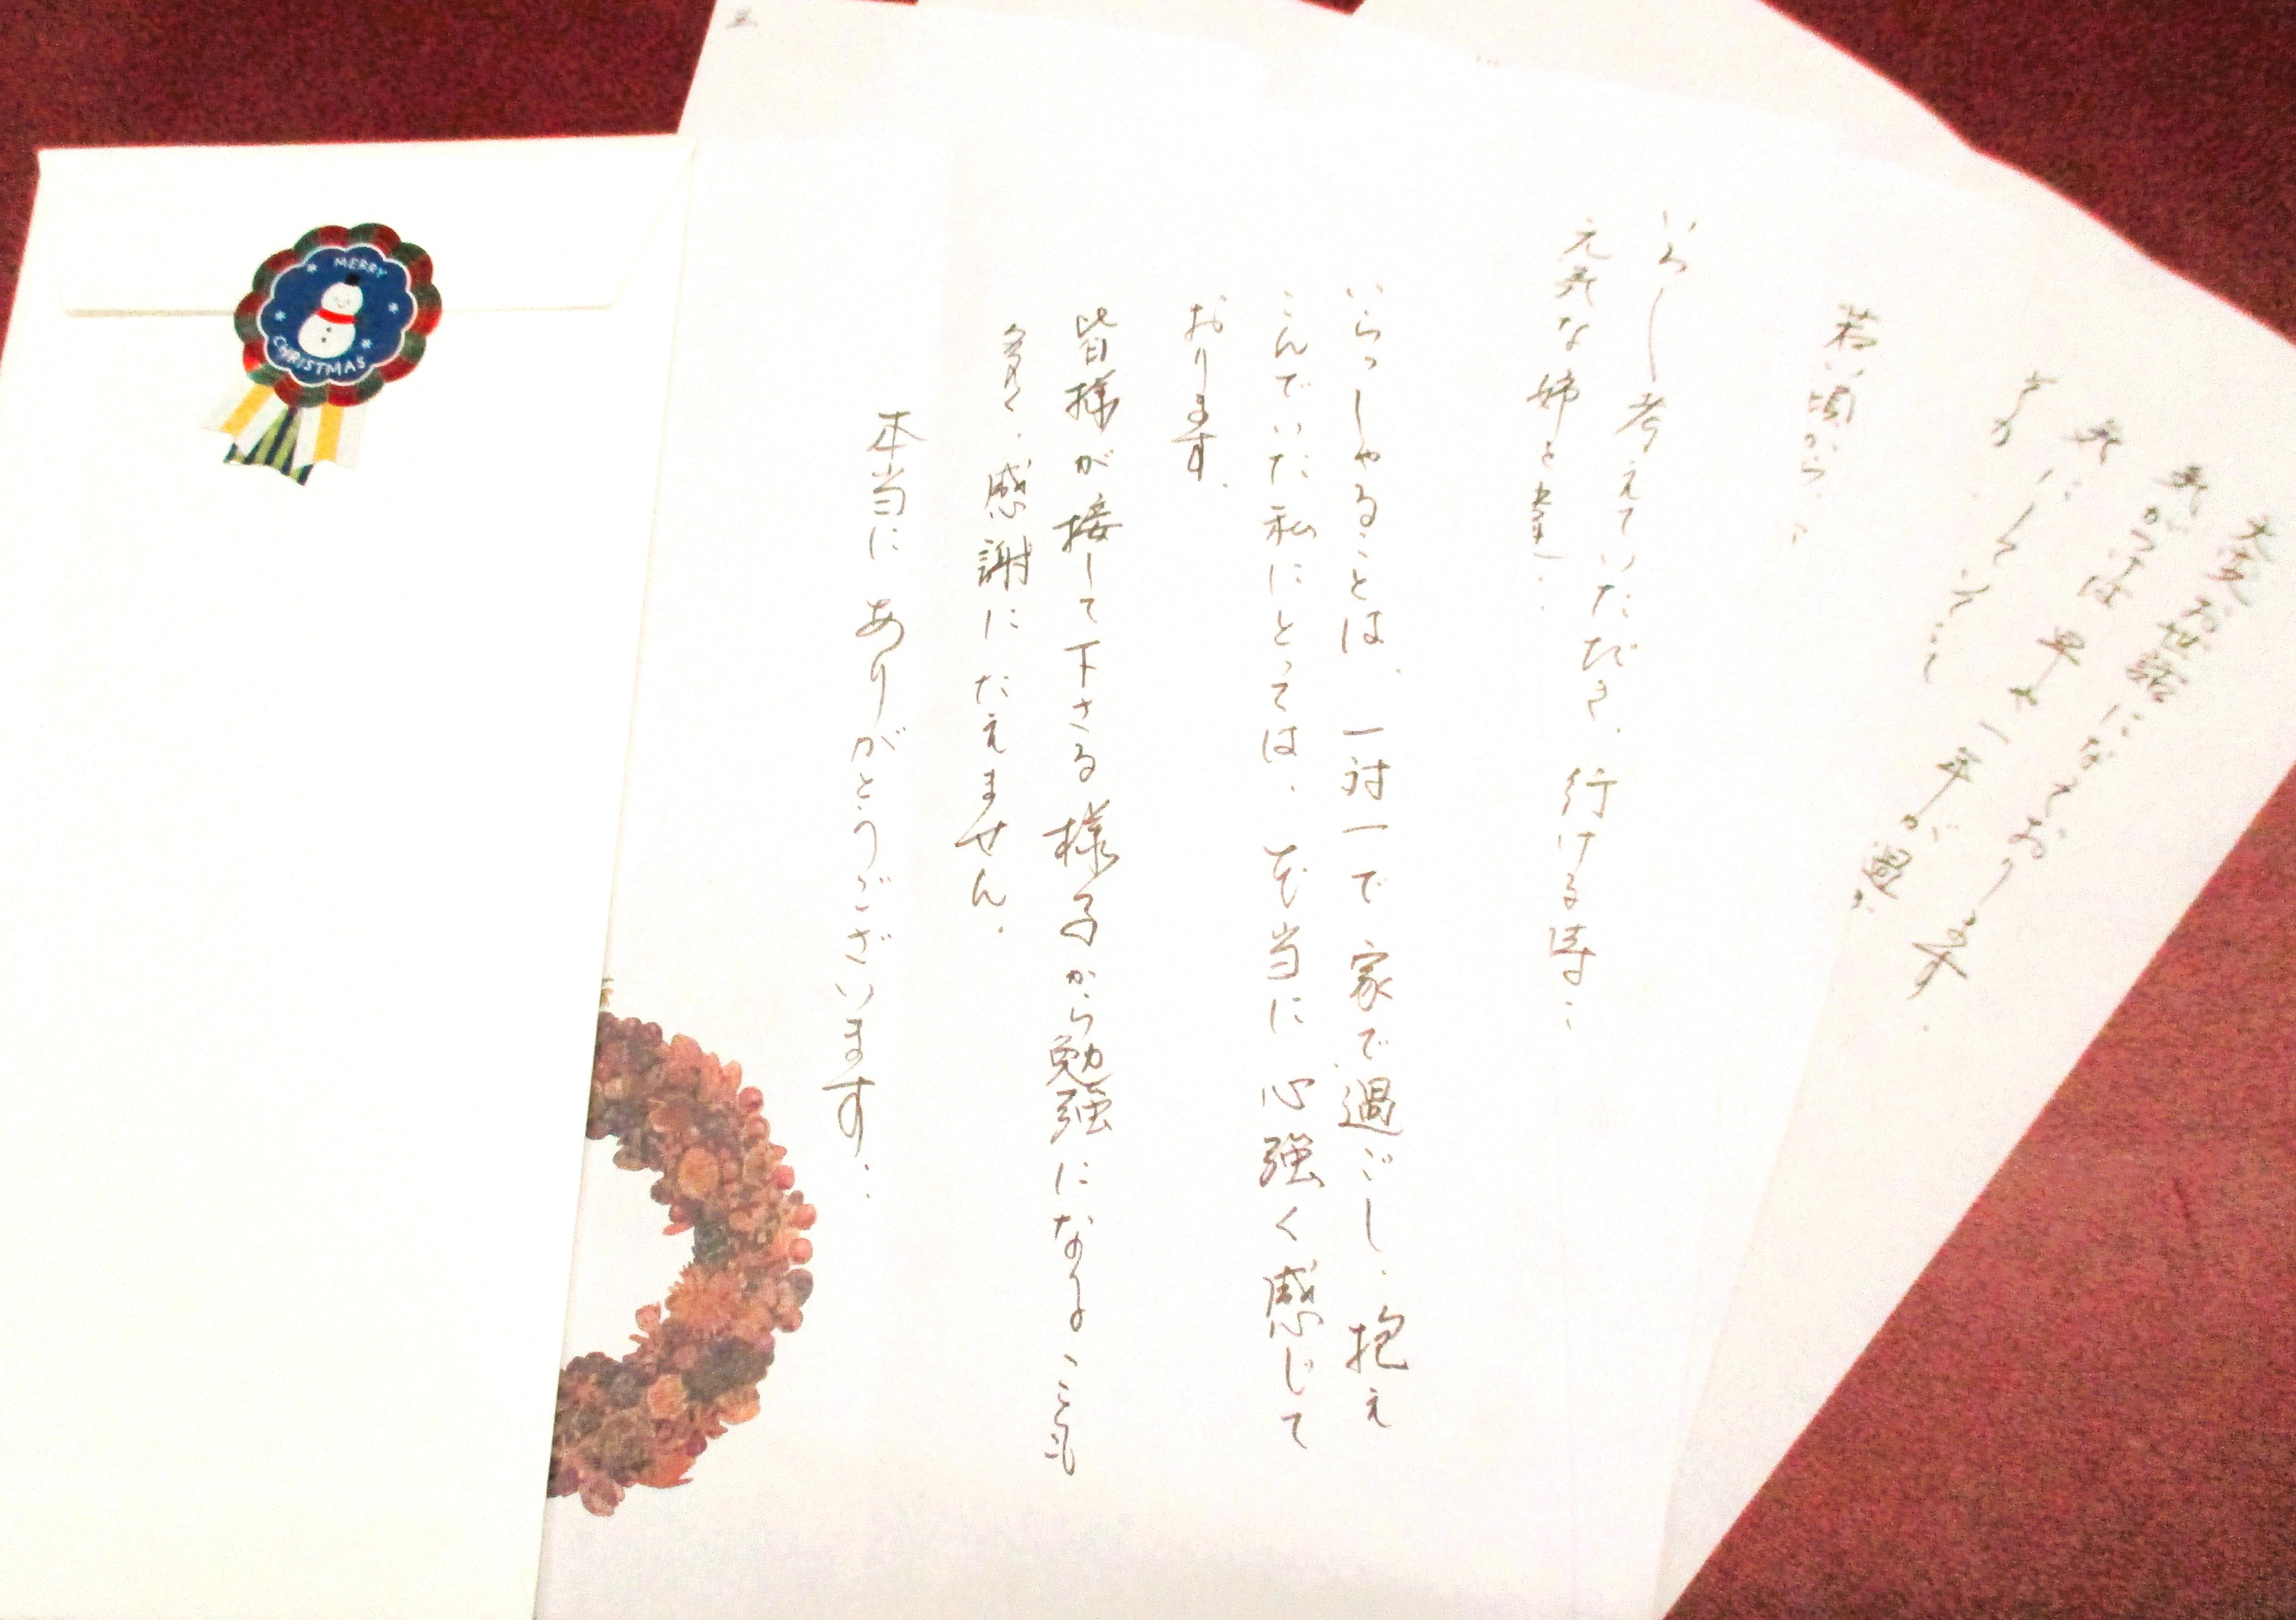 大変お世話になっております
早や一年が過
若い頃から、
考えていただき、行ける時…
元気な姉と
いらっしゃることは、一対一で家で過ごし、抱え
こんでいた私にとっては、本当に心強く感じて
おります。
皆様が接して下さる様子から勉強になることも
多く、感謝にたえません。
本当にありがとうございます…
MERRY
CHRISTMAS